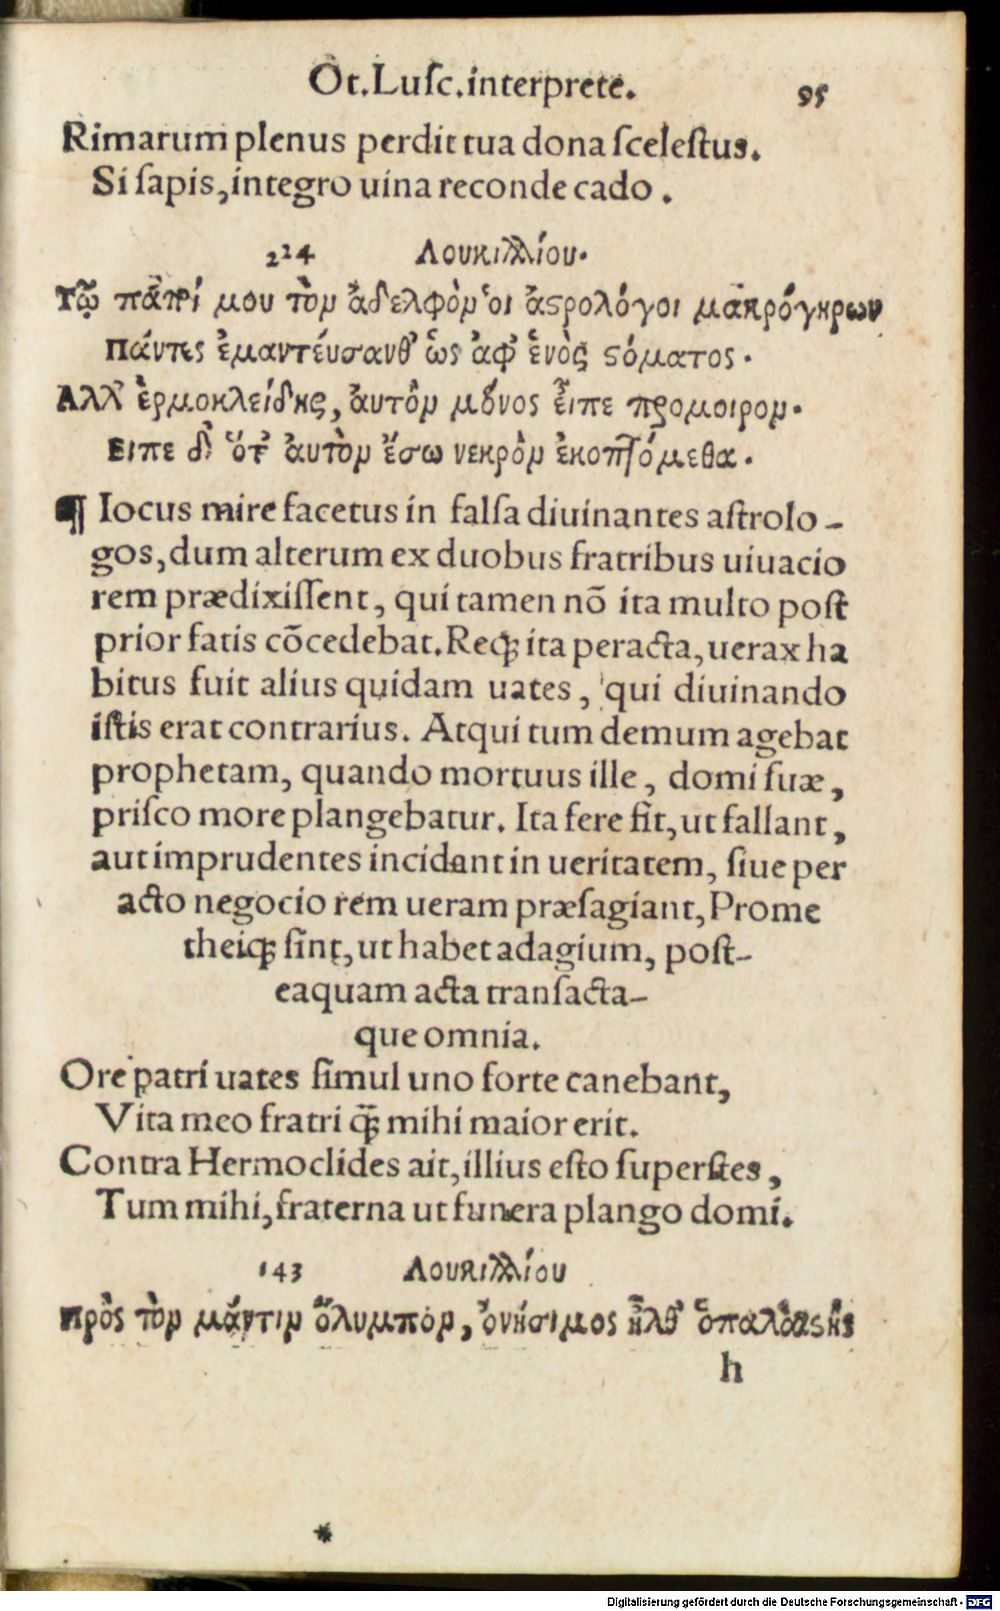 Ot. Luſc. interprete. 95
Rimarum plenus perdit tua dona ſceleſtus.
Si ſapis, integro uina reconde cado.
224 Λουκιλλίου.
Τῷ πατρί μου τὸν ἀδελφὸν οἱ ἀϛρολόγοι μακρόγηρων
Πάντες ἐμαντεύσανθ᾽ ὡς ἀφ᾽ ἑνὸς ϛόματος.
Ἀλλ᾽ ἑρμοκλείδης, αυτὸν μόνος εἶπε προμοιρον.
Ειπε δ᾽ ὅτ᾽ αυτὸν ἔσω νεκρὸν ἐκοπτόμεθα.
¶ Iocus mire facetus in falſa diuinantes aſtrolo-
gos, dum alterum ex duobus fratribus uiuacio
rem prædixiſſent, qui tamen nō ita multo poſt
prior fatis cōcedebat. Reqꝫ ita peracta, uerax ha
bitus fuit alius quidam uates, qui diuinando
iſtis erat contrarius. Atqui tum demum agebat
prophetam, quando mortuus ille, domi ſuæ,
priſco more plangebatur. Ita fere fit, ut fallant,
aut imprudentes incidant in ueritatem, ſiue per
acto negocio rem ueram præſagiant, Prome
theiqꝫ ſint, ut habet adagium, poſt-
eaquam acta tranſacta-
que omnia.
Ore patri uates ſimul uno forte canebant,
Vita meo fratri q̃ꝫ mihi maior erit.
Contra Hermoclides ait, illius eſto ſuperſtes,
Tum mihi, fraterna ut funera plango domi.
143 Λουκιλλίου
Πρὸς τὸν μάντιν ὄλυμπον, ὀνήσιμος ἦλθ᾽ ὁπαλαιϛὴς
h
Digitalisierung gefördert durch die Deutsche Forschungsgemeinschaft - DFG